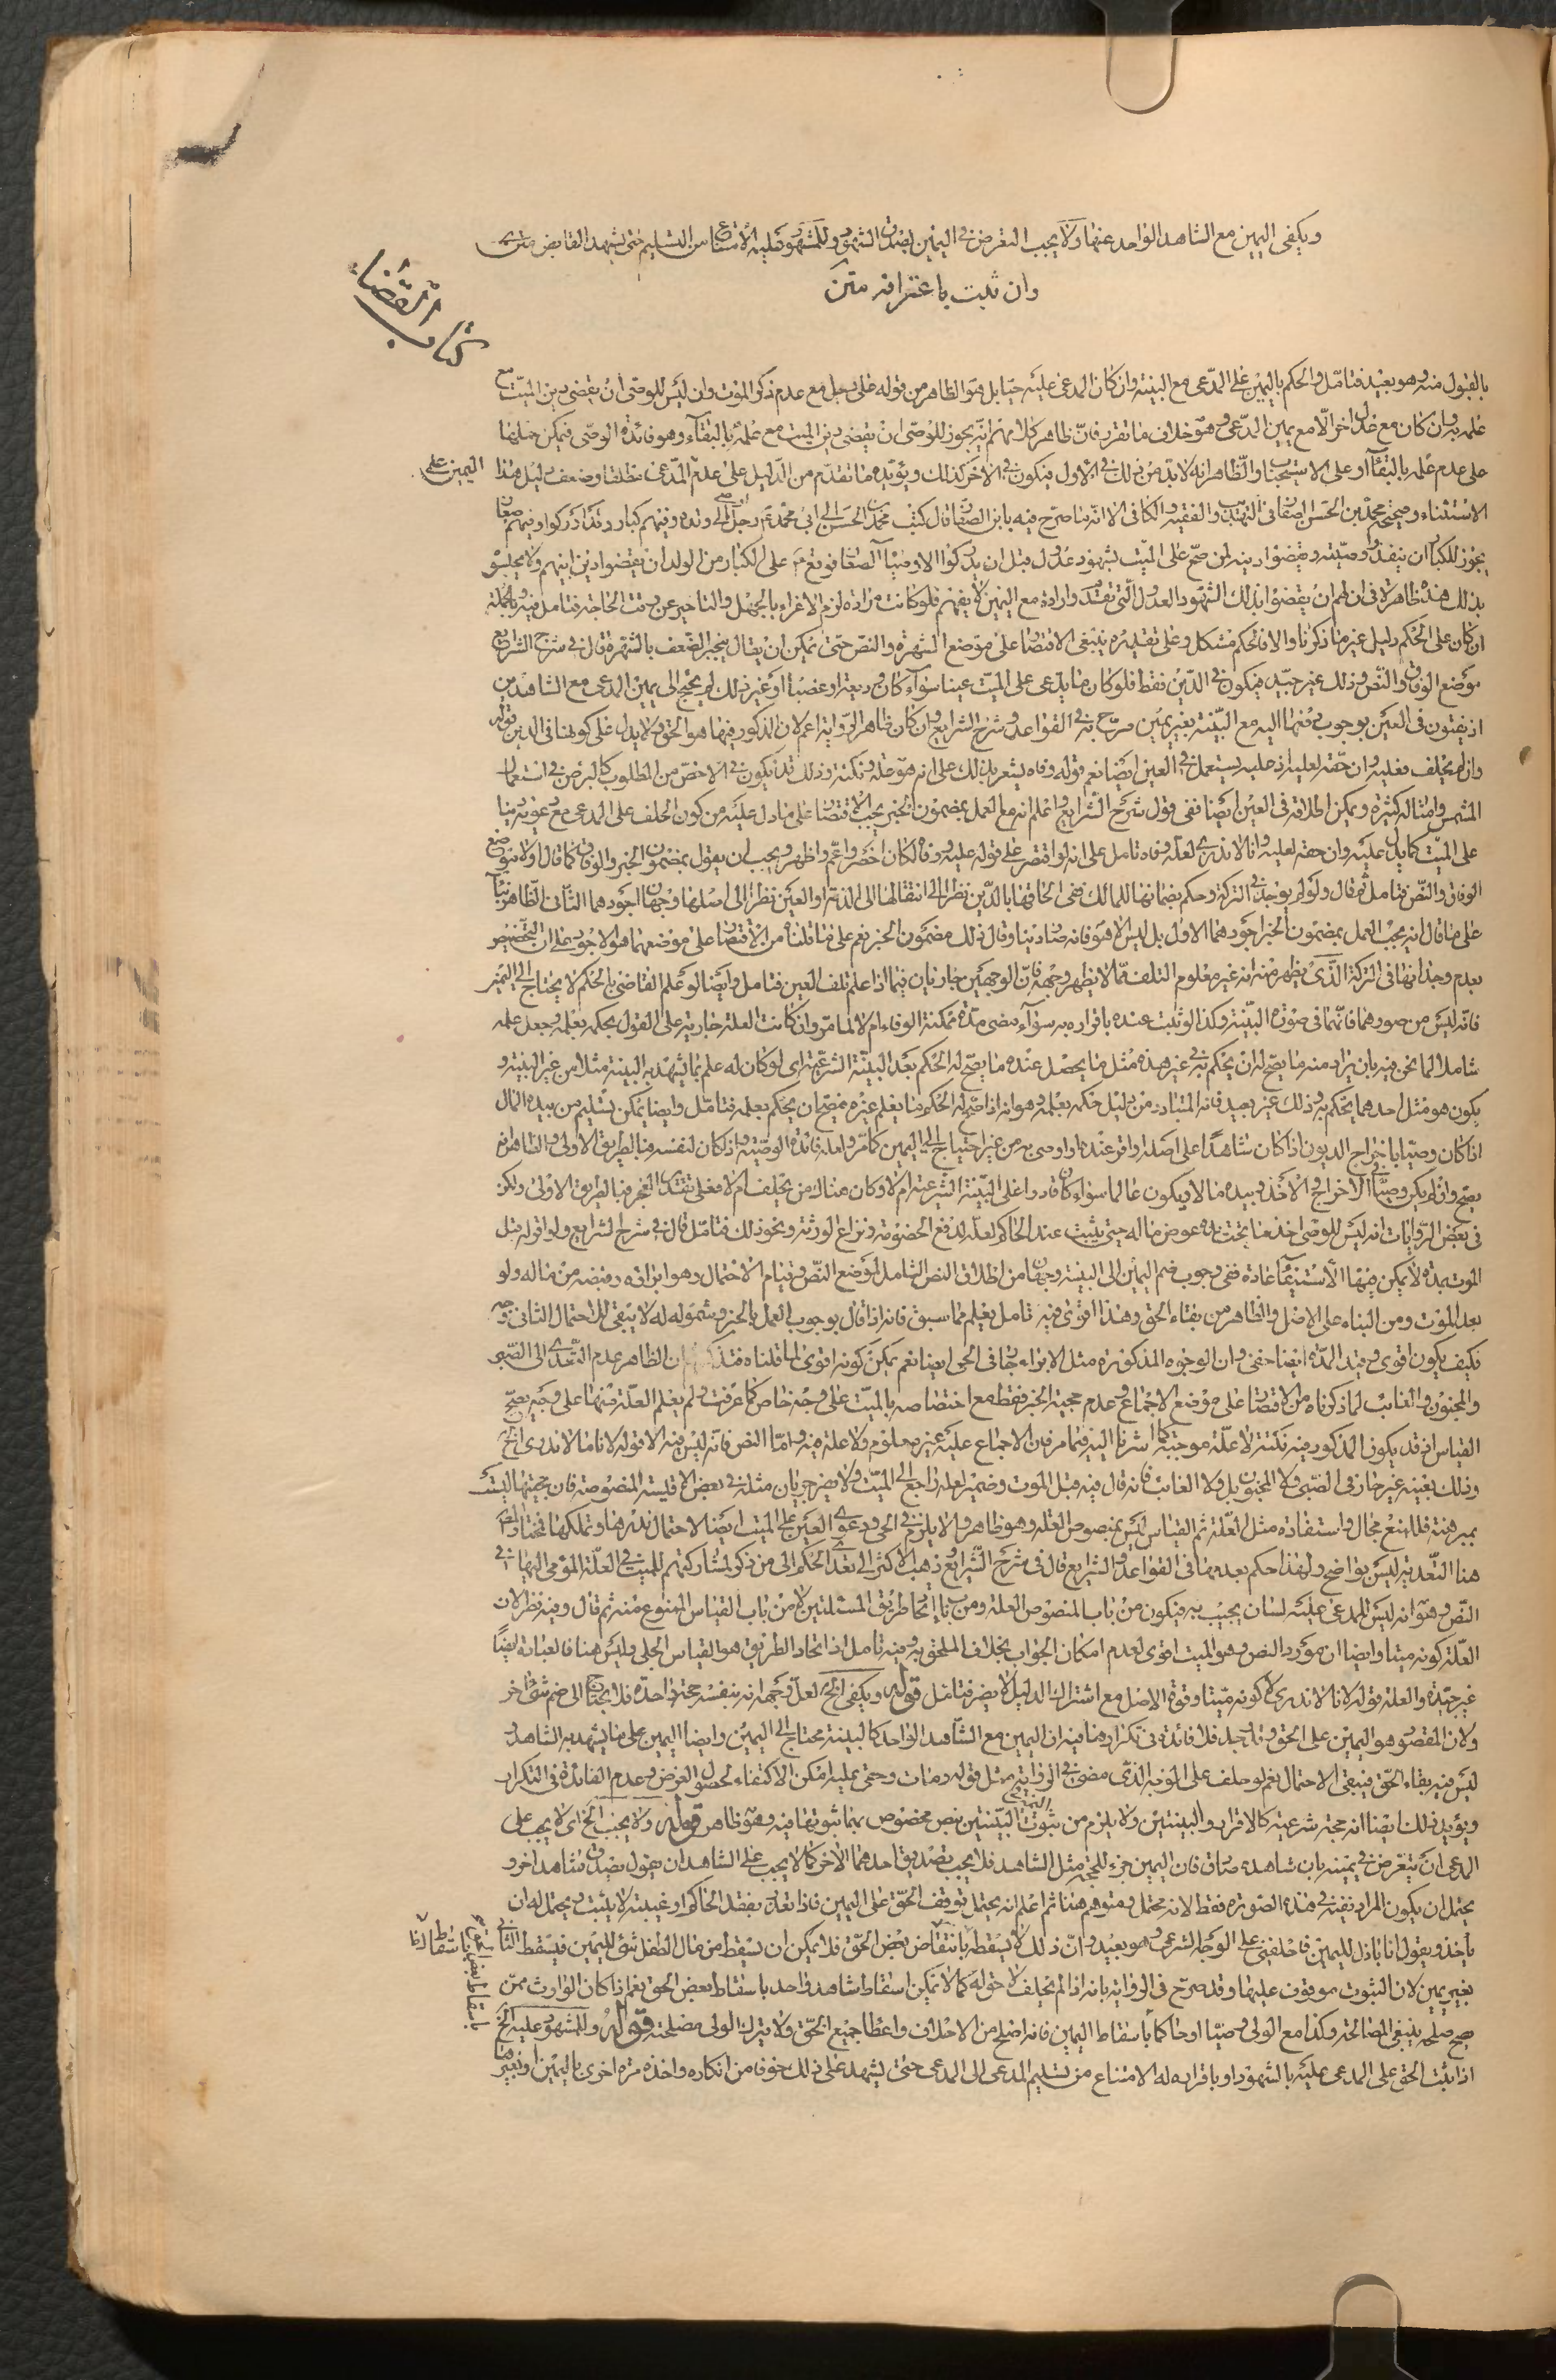 ويكفى اليمين مع الشاهد الواحد عنها ولا يجب التعرض فى اليمين لصدق الشهود وللمشهود عليه الامتناع من التسليم حتى يشهد القابض متن
وان ثبت باعترافه متن
كتاب القضاء
بالقبول منه وهو بعيد فتامّل والحكم باليمين على المدّعى مع البينة وان كان المدعى عليه حيّا بل هو الظاهر من قوله على رجل مع عدم ذكر الموت وان ليس للوصّى ان يقضى دين الميّت مع
علمه به وان كان مع عدل اخر الّا مع يمين المدّعى وهو خلاف ما تقرر فانّ ظاهر كلامهم انّه يجوز للوصّى ان يقضى دين الميت مع علمه بالبقآء وهو فائدة الوصّى فيمكن حملها
على عدم علمه بالبقآ او على الاستحباب والظّاهر انه لا بدّ من ذلك فى الاول فيكون فى الاخر كذلك ويؤيّده ما تقدّم من الدّليل على عدم اليمين على المدّعى مطلقا وضعف دليل هذا
الاستثناء وصحيح محمّد بن الحسن الصّفار فى التهذيب والفقيه والكافى الا انّه ما صرّح فيه بابن الصفّار قال كتب محمد بن الحسن الى ابى محمّد ع رجل اوصى الى ولده وفيهم كبار وقد ادركوا وفيهم صغار
يجوز للكبار ان ينفذوا وصيّته ويقضوا دينه لمن صحّ على الميّت بشهود عدول قبل ان يدركوا الاوصيآ الصّغار فوقع ع على الكبار من الولد ان يقضوا دين ابيهم ولا يحبسوه
بذلك هذه ظاهرة فى ان لهم ان يقضوا بذلك الشّهود العدول الّتى تقدّم وارادة مع اليمين لا يفهم فلو كانت مرادة لزم الاغراء بالجهل والتاخير عن وقت الحاجة فتامل فيه وبالجملة
ان كان على الحكم دليل غير ما ذكرنا والا فالحكم مشكل وعلى تقديره ينبغى الاقتصار على موضع الشهرة والنصّ حتى يمكن ان يقال ينجبر الضّعف بالشهرة قال فى شرح الشرايع
موضع الوفاق والنّص وذلك غير جيّد فيكون فى الدّين فقط فلو كان ما يدّعى على الميّت عينا سوآء كان وديعة او غصبا او غير ذلك لم يحتج الى يمين المدعى مع الشاهدين
اذ يفتون فى العين بوجوب دفعها اليه مع البيّنة بغير يمين صرّح به فى القواعد وشرح الشرايع وان كان ظاهر الرّواية اعم لان المذكور فيها هو الحق ولا يدل على كونها فى الدين قوله
وان لم يحلف فعليه وان حقه لعليه اذ عليه يستعمل فى العين ايضا نعم قوله وفاه يشعر بذلك على انه هو علة ونكتة وذلك قد يكون فى الاخصّ من المطلوب كالبرص فى استعمال
المشمس وامثاله كثيرة ويمكن اطلاقه فى العين ايضا ففى قول شرح الشرايع واعلم انه مع العمل بمضمون الخبر يجب الاقتصار على ما دل عليه من كون الحلف على المدعى مع دعويه دينا
على الميّت كما يدل عليه وان حقه لعليه وانا لا ندرى لعلّه وفاه تامل على انه لو اقتصر على قوله عليه وفاه لكان اخصر واعمّ واظهر ويجب ان يقول بمضمون الخبر والوفاق كما قال ولا موضع
الوفاق والنّص فتامل ثم قال ولو لم يوجد فى التركة وحكم بضمانها للمالك ففى الحاقها بالدّين نظرا الى انتقالها الى الذمّة او العين نظرا الى اصلها وجهان اجودهما الثّانى الظّاهر بنآ
على ما قال انه يجب العمل بمضمون الخبر اجودهما الاول بل ليس الا هو فانه صار دينا وقال ذلك مضمون الخبر نعم على ما قلناه من الاقتصار على موضعهما هو الاجود على ان التّخصيص
بعدم وجدانها فى التركة الّذى يظهر منه انه غير معلوم التلف ممّا لا يظهر وجهه فانّ الوجهين جاريان فيما اذا علم تلف العين فتامل وايضا لو علم القاضى بالحكم لا يحتاج الى اليمين
فانّه ليس من صورهما فانّهما فى صورة البيّنة وكذا لو ثبت عنده باقراره به سوآء مضى مدّة ممكنة الوفاء ام لا لما مرّ وان كانت العلة جارية على القول بحكمه بعلمه وجعل علمه
شاملا لما نحن فيه بان يراد منه ما يصحّ له ان يحكم به فى غير هذه مثل ما يحصل عنده ما يصحّ له الحكم بعد البيّنة الشرعيّة اى لو كان له علم بما يشهد به البينة مثلا من غير البيّنة و
يكون هو مثل احدهما يحكم به وذلك غير بعيد فانه المتبادر من دليل حكمه بعلمه وهو انه اذا صحّ له الحكم بما يعلم غيره فصحّ ان يحكم بعلمه فتامّل وايضا يمكن تسليم من بيده المال
اذا كان وصيّا باخراج الديون اذا كان شاهدًا على اصله واقر عنده او اوصى به من غير احتياج الى اليمين كما مرّ ولعله فائدة الوصيّة واذ كان لنفسه فبالطريق الاولى والظاهر انه
يصح وان لم يكن وصيّا الاخراج والاخذ وبيده مالا ويكون عالما سواء كان قادرا على البيّنة الشرعية ام لا وكان هناك من يحلف ام لا فعلى تقدير العجز فبالطريق الاولى ولكن
فى بعض الرّوايات انه ليس للوصّى اخذ ما تحت يده عوض ماله حتى يثبت عند الحاكم لعلّه لدفع الخصومة ونزاع الورثة ونحو ذلك فتامّل قال فى شرح الشرايع ولو اقر له قبل
الموت بمدّة لا يمكن فيها الاستيفآ عادة ففى وجوب ضم اليمين الى البينة وجهان من اطلاق النص الشامل لموضع النّص وقيام الاحتمال وهو ابراؤه وقبضه من ماله ولو
بعد الموت ومن البناء على الاصل والظاهر من بقاء الحق وهذا اقوى وفيه تامل يعلم مما سبق فانه اذا قال بوجوب العمل بالخبر وشموله له لا يبقى للاحتمال الثانى وجه
فكيف يكون اقوى وقيد المدّة ايضا خفى وان الوجوه المذكورة مثل الابراء جار فى الحى ايضا نعم يمكن كونه اقوى لما قلناه فتذكر ان الظاهر عدم التّعدى الى الصّبى
والمجنون والغائب لما ذكرناه من الاقتصار على موضع الاجماع وعدم حجية الخبر فقط مع اختصاصه بالميّت على وجه خاص كما عرفت ولم يعلم العلّة منها على وجه يصحّ
القياس اذ قد يكون المذكور فيه نكتة لا علّة موجبة كما اشرنا اليه فيما مر فان الاجماع عليه غير معلوم ولا علة فيه وامّا النص فانّه ليس فيه الا قوله لانا لا ندرى الخ
وذلك بعينه غير جار فى الصّبى ولا المجنون بل ولا الغائب فانه قال فيه قبل الموت وضمير لعله راجع الى الميّت ولا يضر جريان مثله فى بعض الاقيسة المنصوصة فان حجيتها ليست
بمبرهنة فللمنع مجال واستفادة مثل العلّة ثم القياس ليس بمنصوص العلة وهو ظاهر والا يلزم فى الحى ودعوى العين على الميت ايضا لاحتمال نذرها وتملكها فتامّل
هنا التّعدية ليس بواضح ولهذا حكم بعدمها فى القواعد والشرايع قال فى شرح الشّرايع ذهب الاكثر الى تعدى الحكم الى من ذكر لمشاركتهم للميت فى العلّة المومى اليها فى
النّص وهو انه ليس للمدعى عليه لسان يجيب به فيكون من باب المنصوص العلة ومن باب اتحاد طريق المسئلتين لا من باب القياس الممنوع منه ثم قال وفيه نظر لان
العلّة كونه ميتا وايضا ان مورد النص وهو الميت اقوى لعدم امكان الجواب بخلاف الملحق به وفيه تامل اذ اتحاد الطريق هو القياس الجلى وليس هنا فالعبارة ايضًا
غير جيّدة والعلة قوله لانا لا ندرى لا كونه ميّتا وقوة الاصل مع اشتراك الدليل لا يضر فتامّل قوله ويكفى الخ لعلّ وجهه انه بنفسه حجة واحدة فلا يحتاج الى ضم شئ اخر
ولان المقصود هو اليمين على الحق وقد وجد فلا فائدة فى تكراره وما فيه ان اليمين مع الشّاهد الواحد كالبينة محتاج الى اليمين وايضا اليمين على ما يشهد به الشاهد و
ليس فيه بقاء الحّق فيبقى الاحتمال نعم لو حلف على الوجه الّذى مضى فى الرواية مثل قوله ومات وحقى عليه امكن الاكتفاء لحصول الغرض وعدم الفائدة فى التكرار
ويؤيد ذلك ايضا انه حجة شرعية كالاقرار والبينتين ولا يلزم من ثبوت اليمين فى البيّنتين بنص مخصوص بهما ثبوتها فيه وهو ظاهر قوله ولا يجب الخ اى لا يجب على
المدعى ان يتعرض فى يمينه بان شاهده صادق فان اليمين جزء للحجّة مثل الشاهد فلا يجب تصديق احدهما الاخر كما لا يجب على الشاهد ان يقول بصدق شاهد اخر و
يحتمل ان يكون المراد نفيه فى هذه الصّورة فقط لانه محتمل ومتوهم هنا ثم اعلم انه يحتمل توقف الحّق على اليمين فاذا تعذّر بفقد الحاكم او غيبته لا يثبت ويحتمل له ان
ياخذ ويقول انا باذل لليمين فاحلفنى على الوجه الشرعى وهو بعيد وانّ ذلك لا يسقط بانتقاض بعض الحّق فلا يمكن ان يسقط من مال الطفل شئ لليمين فيسقط الباقى
بغير يمين لان الثبوت موقوف عليها وقد صرّح فى الرواية بانه اذا لم يحلف لا حق له كما لا يمكن اسقاط شاهد واحد باسقاط بعض الحق نعم اذا كان الوارث ممّن
يصح صلحه ينبغى المصالحة وكذا مع الولى وصيّا او حاكما باسقاط اليمين فانه اصلح من الاحلاف واعطا جميع الحّق ولا يترك الولى مصلحته قوله وللمشهود عليه الخ
اذا ثبت الحق على المدعى عليه بالشهود او باقراره له الامتناع من تسليم المدعى الى المدعى حتى يشهد على ذلك خوفا من انكاره واخذه مرة اخرى باليمين او بغيرها